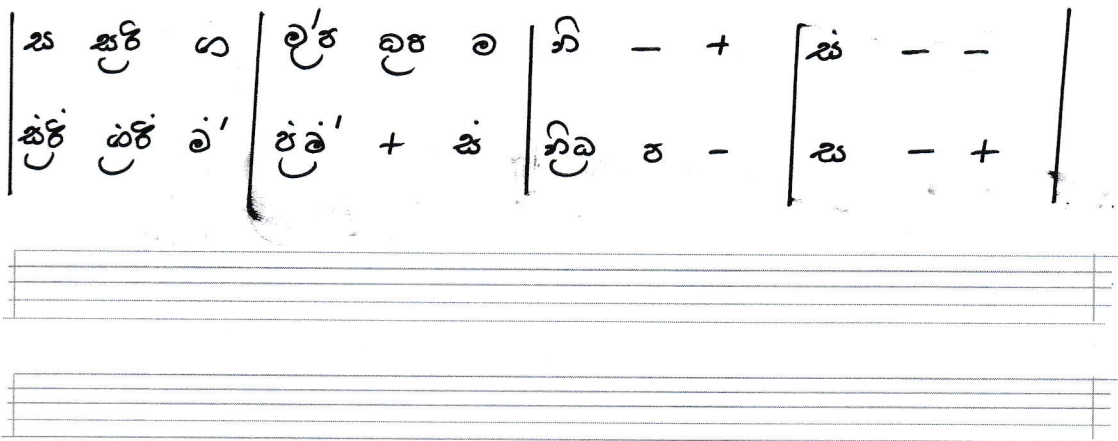 | ස සරි ග | ම'ප ධප ම | නි – + | සं – – |
| සंරිं ගंරිं මं' | පंමं' + සं | නිධ ප – | ස – + |